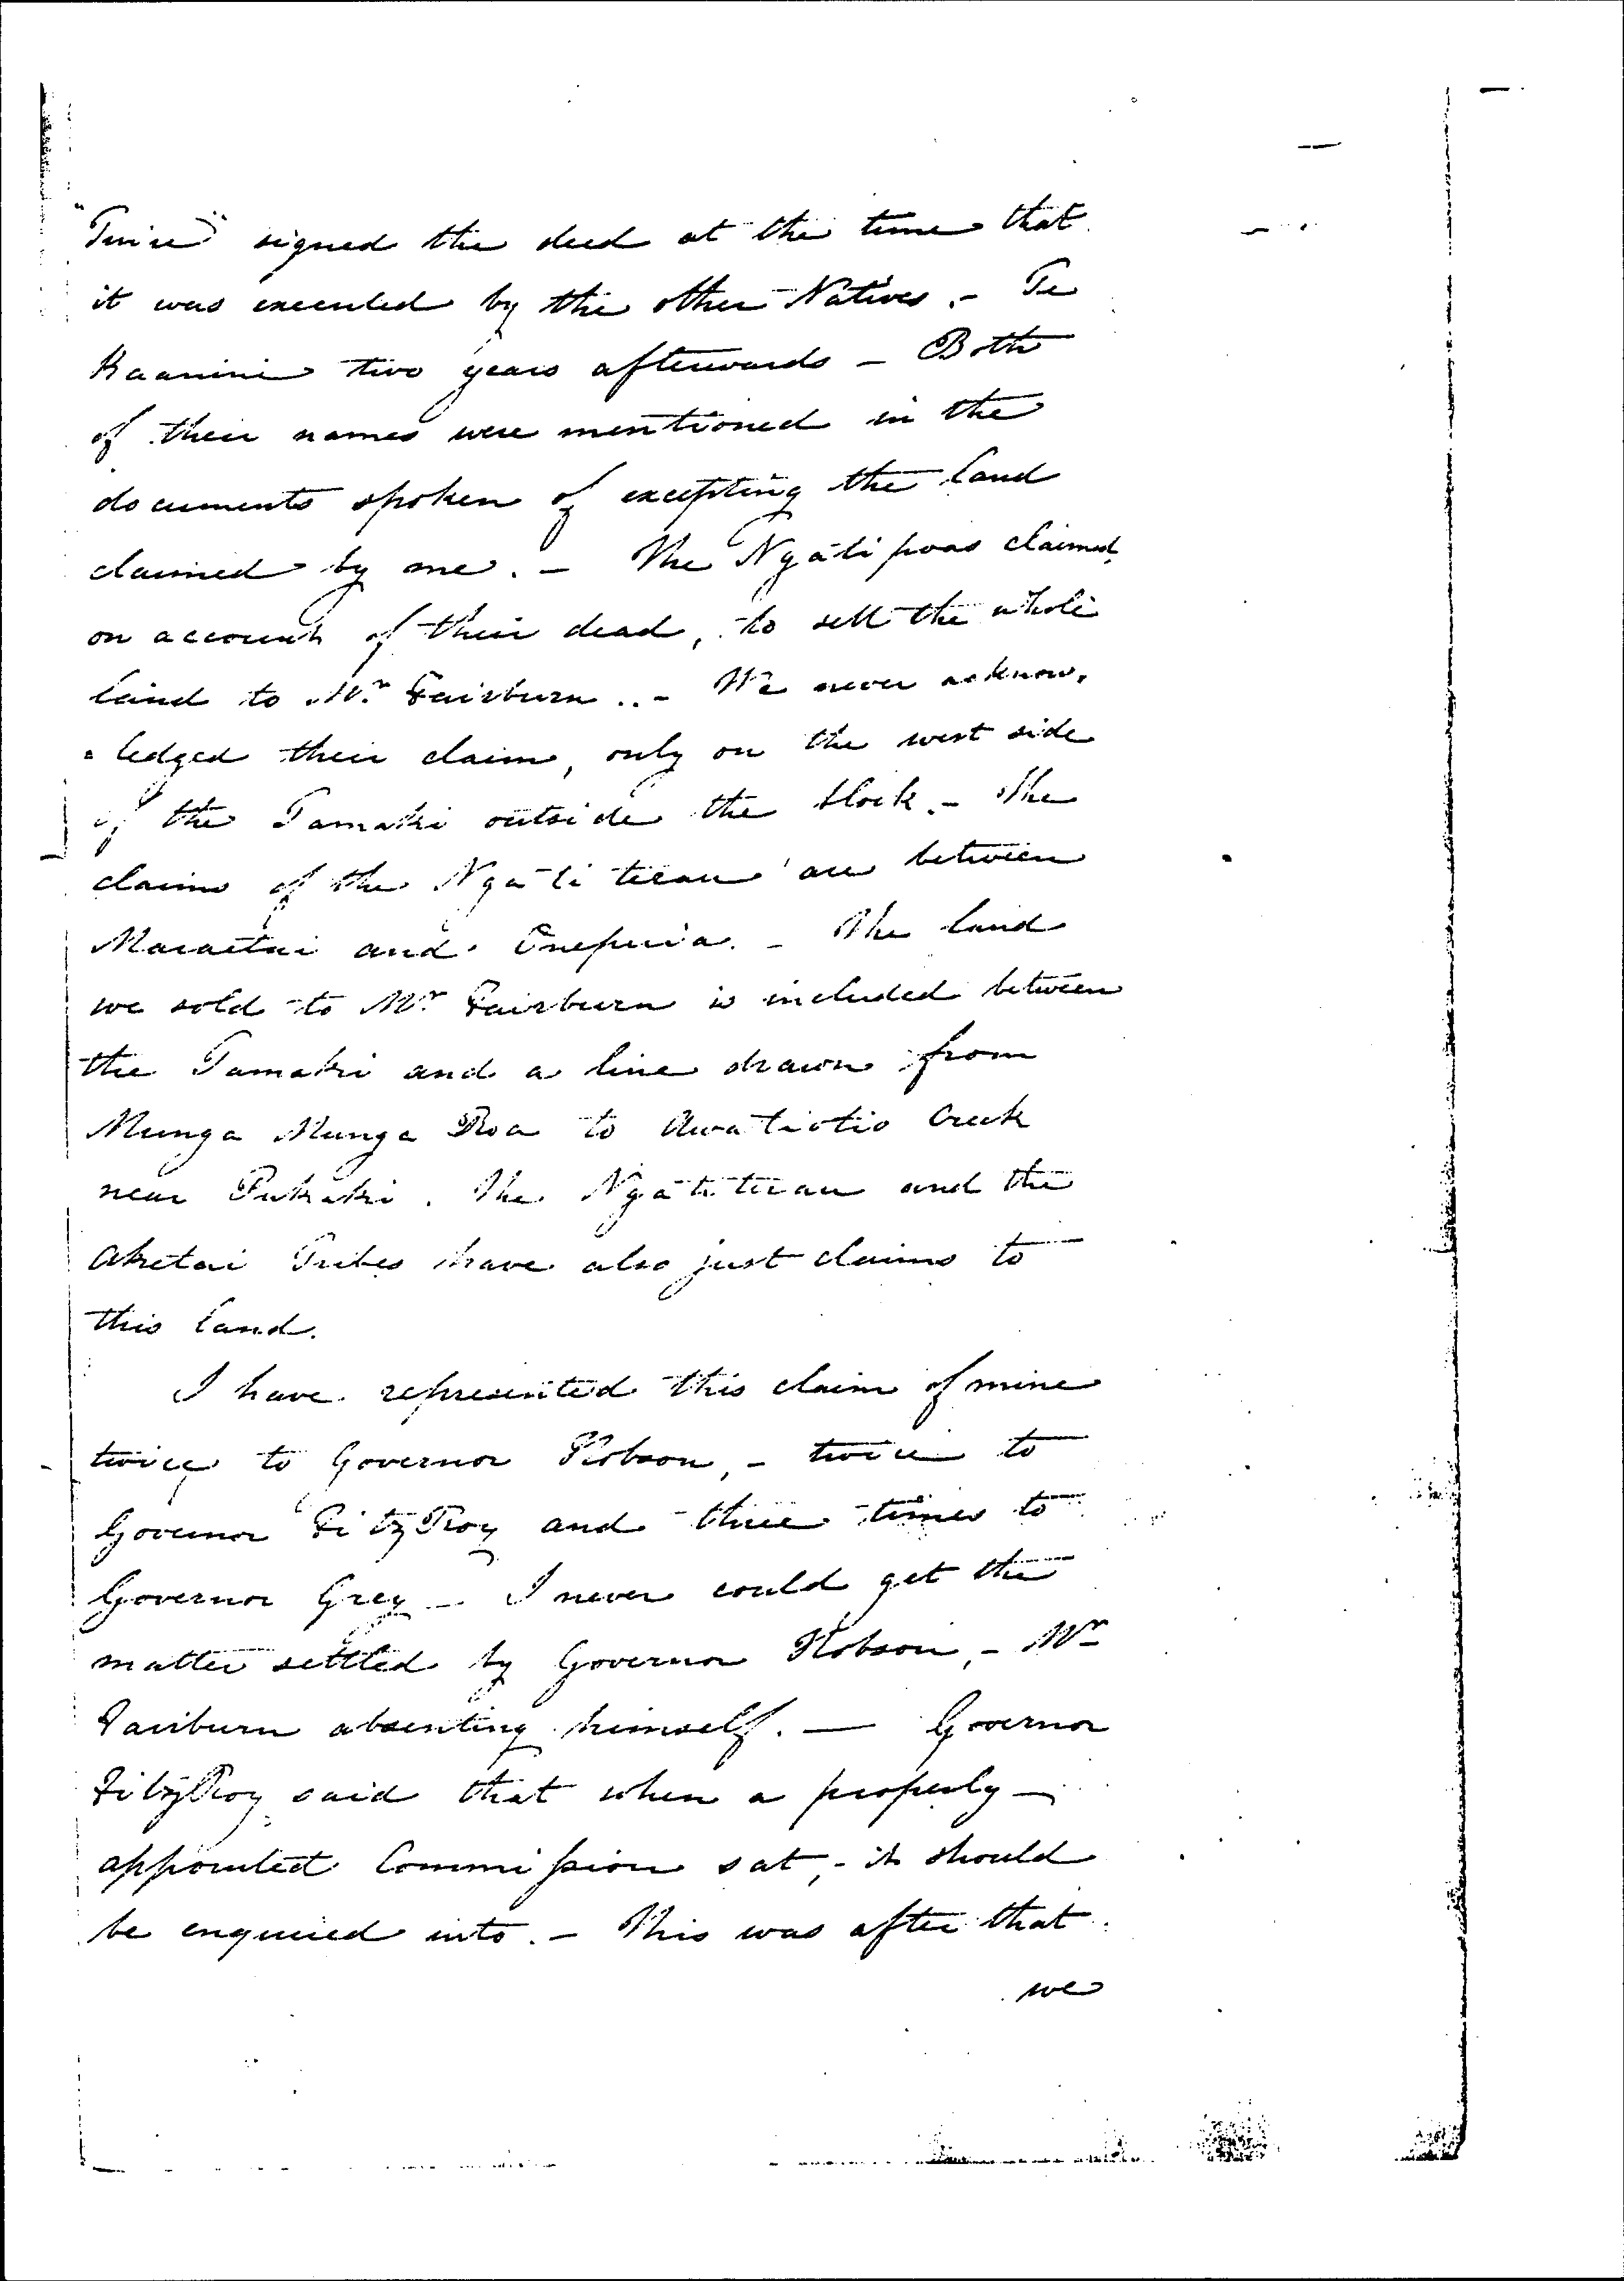 "Twice" signed the deed at the time that
it was executed by the other Natives. - Te
Kaanini two years afterwards - Both
of their names were mentioned in the
documents spoken of excepting the land
claimed by me. - The Ngati poas claimed,
on account of their dead, to sell the whole
land to Mr. Fairburn .. - We never acknow,
= ledged their claim, only on the west side
of the Tamaki outside the block. - The
claims of the Ngati terau are between
Maraetai and Onepuia. - The land
we sold to Mr. Fairburn is included between
the Tamaki and a line drawn from
Munga Munga Roa to Awatiotio Creek
near Pukaki. The Ngati terau and the
Akitai Tribes have also just claims to
this land.
I have represented this claim of mine
twice to Governor Hobson, - twice to
Governor FitzRoy and three times to
Governor Grey - I never could get the
matter settled by Governor Hobson, - Mr
Fairburn absenting himself. — Governor
FitzRoy said that when a properly -
appointed Commission sat, - it should
be enquired into. - This was after that
we